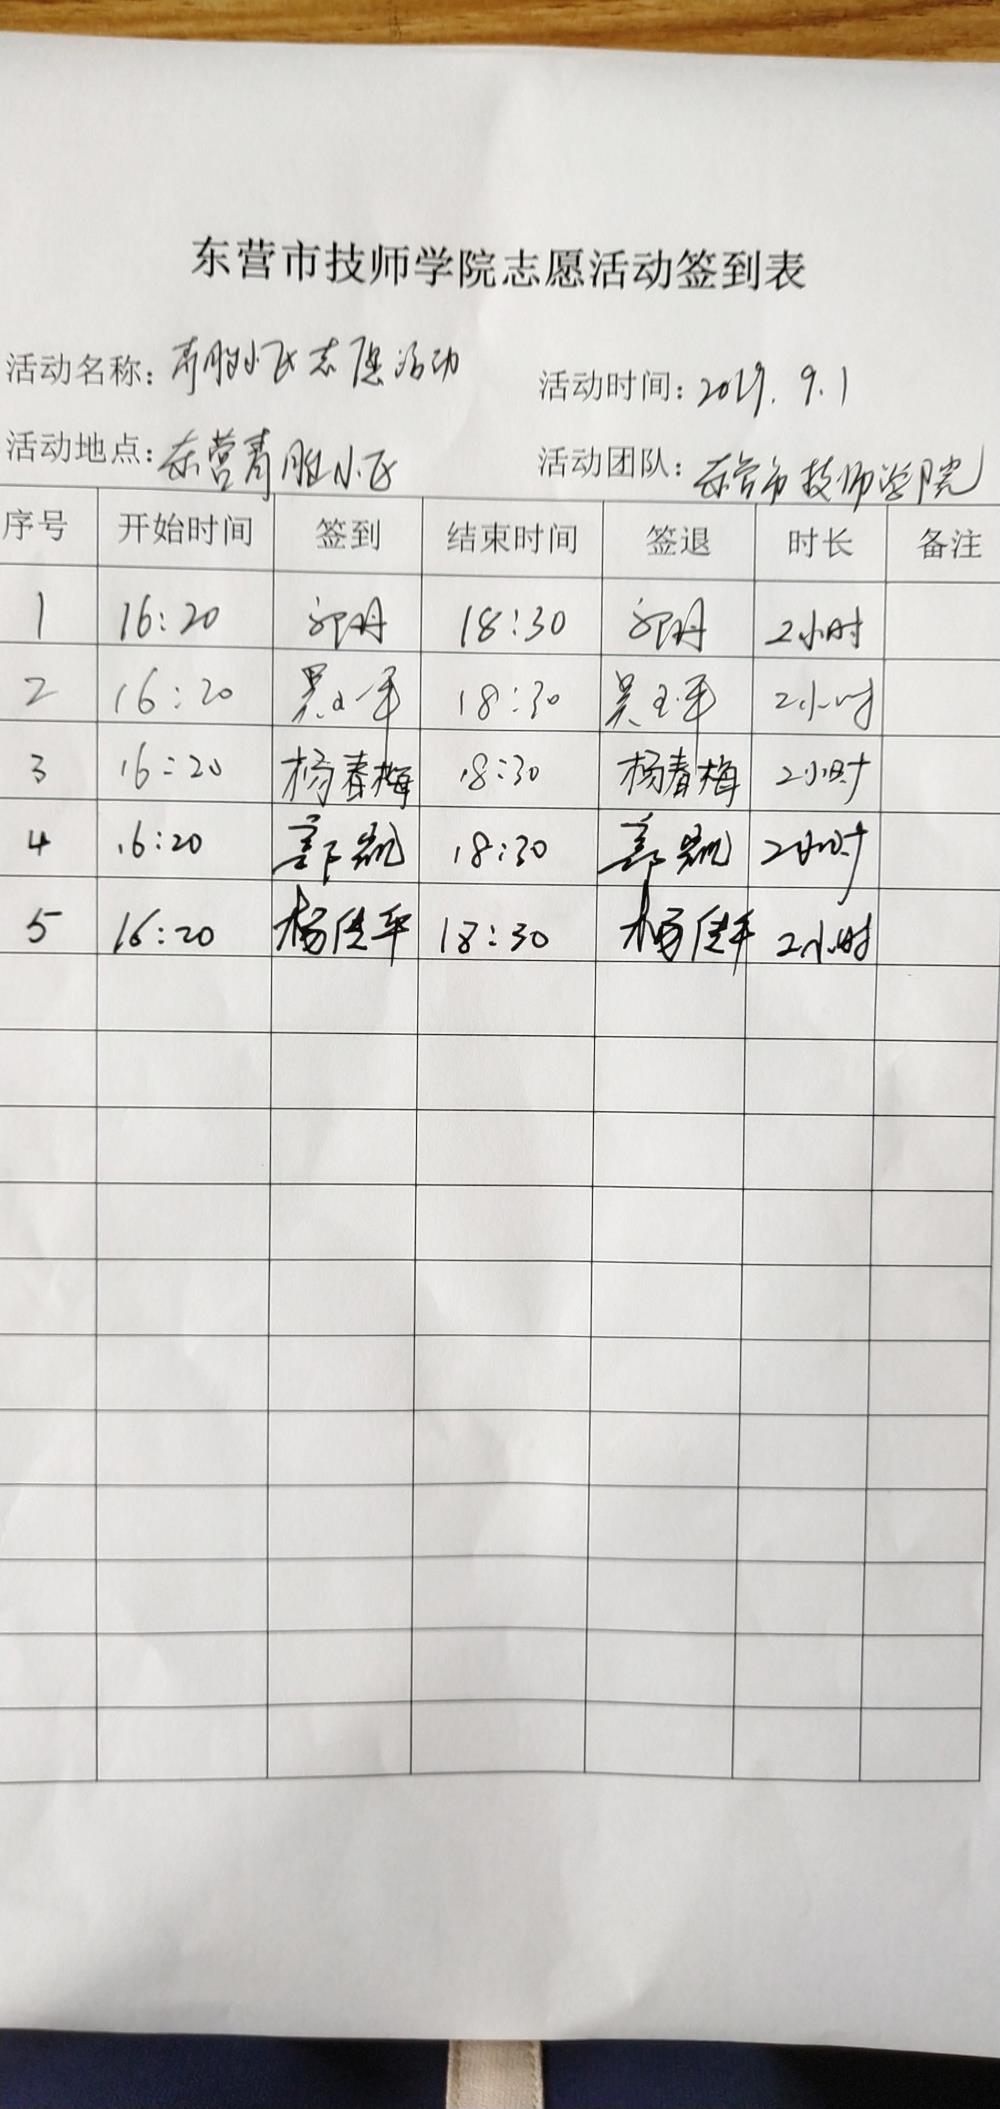 东营市技师学院志愿活动签到表
活动名称：青胜小区志愿活动 活动时间：2019.9.1
活动地点：东营青胜小区 活动团队：东营市技师学院
序号 开始时间 签到 结束时间 签退 时长 备注
1 16:20 18:30 2小时
2 16:20 吴玉平 18:30 吴玉平 2小时
3 16:20 杨春梅 18:30 杨春梅 2小时
4 16:20 18:30 2小时
5 16:20 杨佳平 18:30 杨佳平 2小时